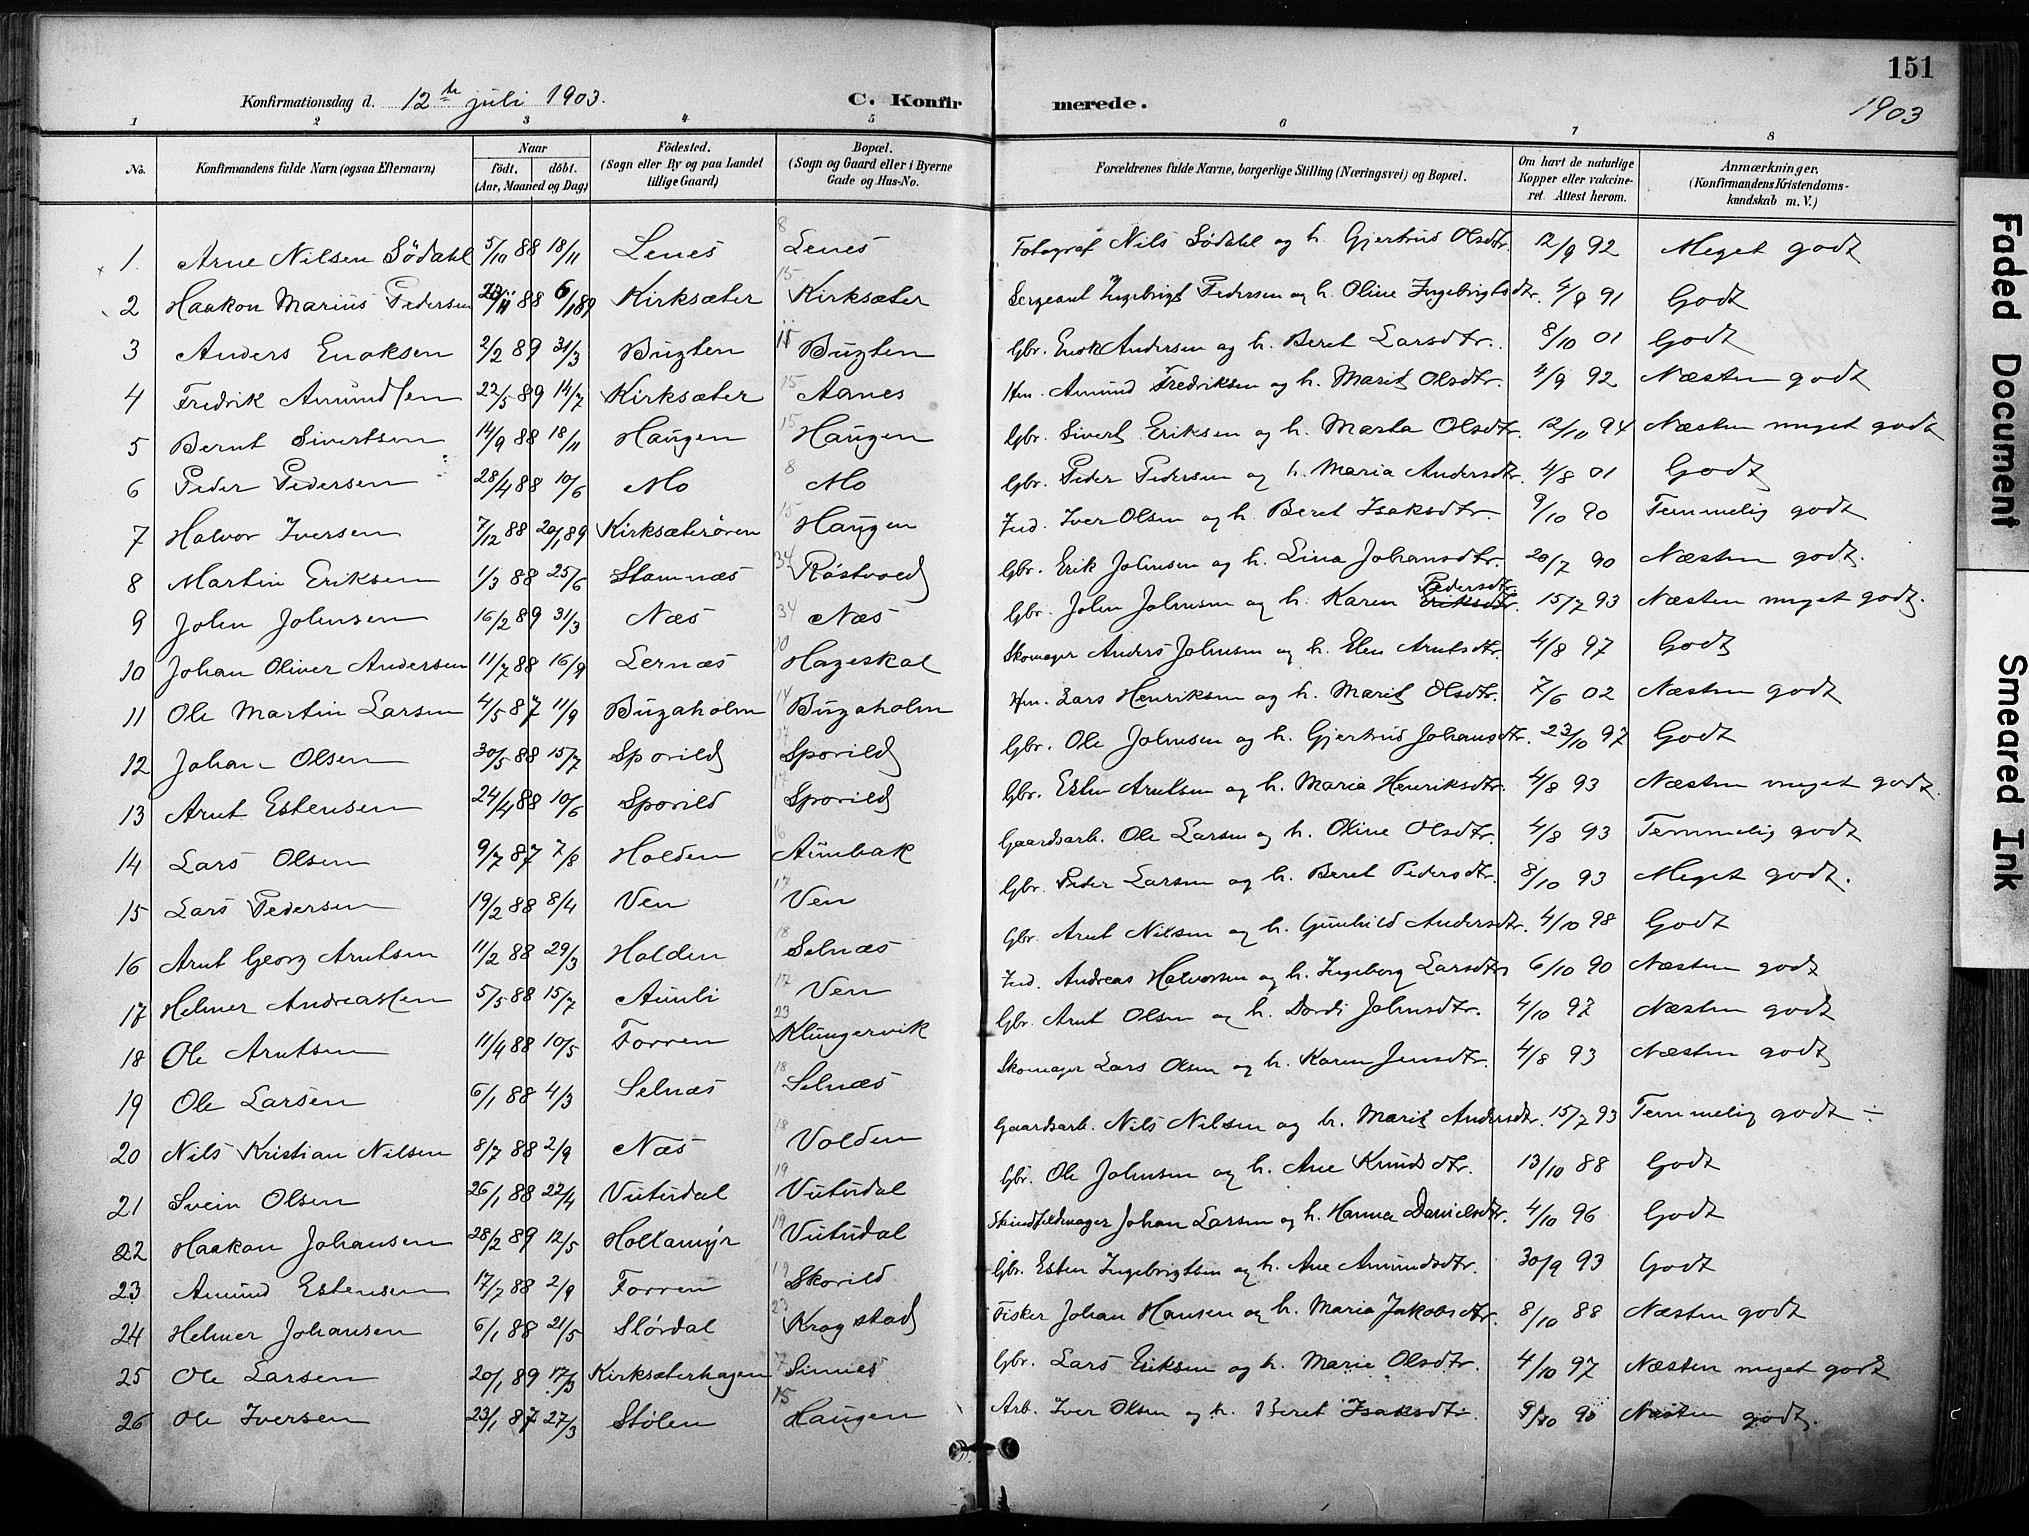 151
Konfirmationsdag d. 12te juli 1903. C. Konfirmerede. 1903
1 2 3 4 5 6 7 8
No. Konfirmandens fulde Navn (ogsaa Efternavn) Naar födt. döbt. (Aar, Maaned og Dag) Födested. (Sogn eller By og paa Landet tillige Gaard) Bopæl. (Sogn og Gaard eller i Byerne Gade og Hus-No. Forældrenes fulde Navne, borgerlige Stilling (Næringsvei) og Bopæl. Om havt de naturlige Kopper eller vakcineret. Attest herom. Anmærkninger. (Konfirmandens Kristendomskundskab m. V.)
1. Arne Nilsen Södahl 5/10 88 18/11 Lenes 8 Lenes Fotograf Nils Södahl og h. Gjertrud Olsdtr. 12/9 92 Meget godt
2 Haakon Marius Pedersen /11 88 6/1 89 Kirksæter 15 Kirksæter Sergeant Ingebrigt Pedersen og h. Oline Ingebrigtsdtr. 4/9 91 Godt
3 Anders Enoksen 2/2 89 31/3 Bugten 11 Bugten Gbr. Enok Andersen og h. Beret Larsdtr. 8/10 01 Godt
4 Fredrik Amundsen 22/5 89 14/7 Kirksæter 15 Aanes Hm. Amund Fredriksen og h. Marit Olsdtr. 4/9 92 Næsten godt
5 Bernt Sivertsen 14/9 88 18/11 Haugen 15 Haugen Gbr. Sivert Eriksen og h. Marta Olsdtr. 12/10 94 Næsten meget godt
6 Peder Pedersen 28/4 88 10/6 Mo 8 Mo Gbr. Peder Pedersen og h. Maria Andersdtr. 4/8 01 Godt
7 Halvor Iversen 7/12 88 20/1 89 Kirksæterøren 15 Haugen Ind. Iver Olsen og h. Beret Isaksdtr. 9/10 90 Temmelig godt
8 Martin Eriksen 1/3 88 25/6 Stamnæs 34 Röstvold Gbr. Erik Johnsen og h. Lina Johansdtr. 20/7 90 Næsten godt.
9 John Johnsen 16/2 89 31/3 Næs 34 Næs Gbr. John Johnsen og h. Karen Eriksdtr. Pedersdtr. 15/7 93 Næsten meget godt.
10 Johan Oliver Andersen 11/7 88 16/9 Lernæs Hageskal Skomager Anders Johnsen og h. Elen Arntsdtr. 4/8 97 Godt
11 Ole Martin Larsen 4/5 87 11/9 Bugaholm 14 Bugaholm Hm. Lars Henriksen og h. Marit Olsdtr. 7/6 02 Næsten godt
12 Johan Olsen 30/5 88 15/7 Sporild Sporild Gbr. Ole Johnsen og h. Gjertrud Johansdtr. 23/10 97 Godt
13 Arnt Estensen 24/4 88 10/6 Sporild Sporild Gbr. Esten Arntsen og h. Maria Henriksdtr. 4/8 93 Næsten meget godt.
14 Lars Olsen 9/7 87 7/8 Holden 16 Aunbak Gaardsarb. Ole Larsen og h. Oline Olsdtr. 4/8 93 Temmelig godt
15 Lars Pedersen 19/2 88 8/4 Ven 17 Ven Gbr. Peder Larsen og h. Beret Pedersdtr. 8/10 93 Meget godt.
16 Arnt Georg Arntsen 11/2 88 29/3 Holden 18 Selnæs Gbr. Arnt Nilsen og h. Gunhild Andersdtr. 4/10 98 Godt
17 Helmer Andreassen 5/5 88 15/7 Aunli 17 Ven Ind. Andreas Halvorsen og h. Ingeborg Larsdtr 6/10 90 Næsten godt
18 Ole Arntsen 11/4 88 10/5 Forren 23 Klungervik Gbr. Arnt Olsen og h. Dordi Johnsdtr. 4/10 92 Næsten godt
19 Ole Larsen 6/1 88 4/3 Selnæs 18 Selnæs Skomager Lars Olsen og h. Karen Jensdtr. 4/8 93 Næsten godt
20 Nils Kristian Nilsen 8/7 88 2/9 Næs 18 Volden Gaardsarb. Nils Nilsen og h. Marit Andersdtr. 15/7 93 Temmelig godt ÷
21 Svein Olsen 26/1 88 22/4 Vutudal 19 Vutudal Gbr. Ole Johnsen og h. Ane Knudsdtr. 13/10 88 Godt
22 Haakon Johansen 28/2 89 12/5 Hollamyr 19 Vutudal Skindfeldmager Johan Larsen og h. Hanna Danielsdtr. 4/10 96 Godt
23 Amund Estensen 17/7 88 2/9 Forren 19 Skorild Gbr. Esten Ingebrigtsen og h. Ane Amundsdtr. 30/9 93 Godt
24 Helmer Johansen 6/1 88 21/5 Slördal 23 Krogstad Fisker Johan Hansen og h. Maria Jakobsdtr. 8/10 88 Næsten godt
25 Ole Larsen 20/1 89 17/3 Kirksæterhagen 7 Sinnes Gbr. Lars Eriksen og h. Marie Olsdtr. 4/10 97 Næsten meget godt
26 Ole Iversen 23/1 87 27/3 Stölen 15 Haugen Arb. Iver Olsen og h. Beret Isaksdtr. 9/10 90 Næsten godt.
Faded Document
Smeared Ink